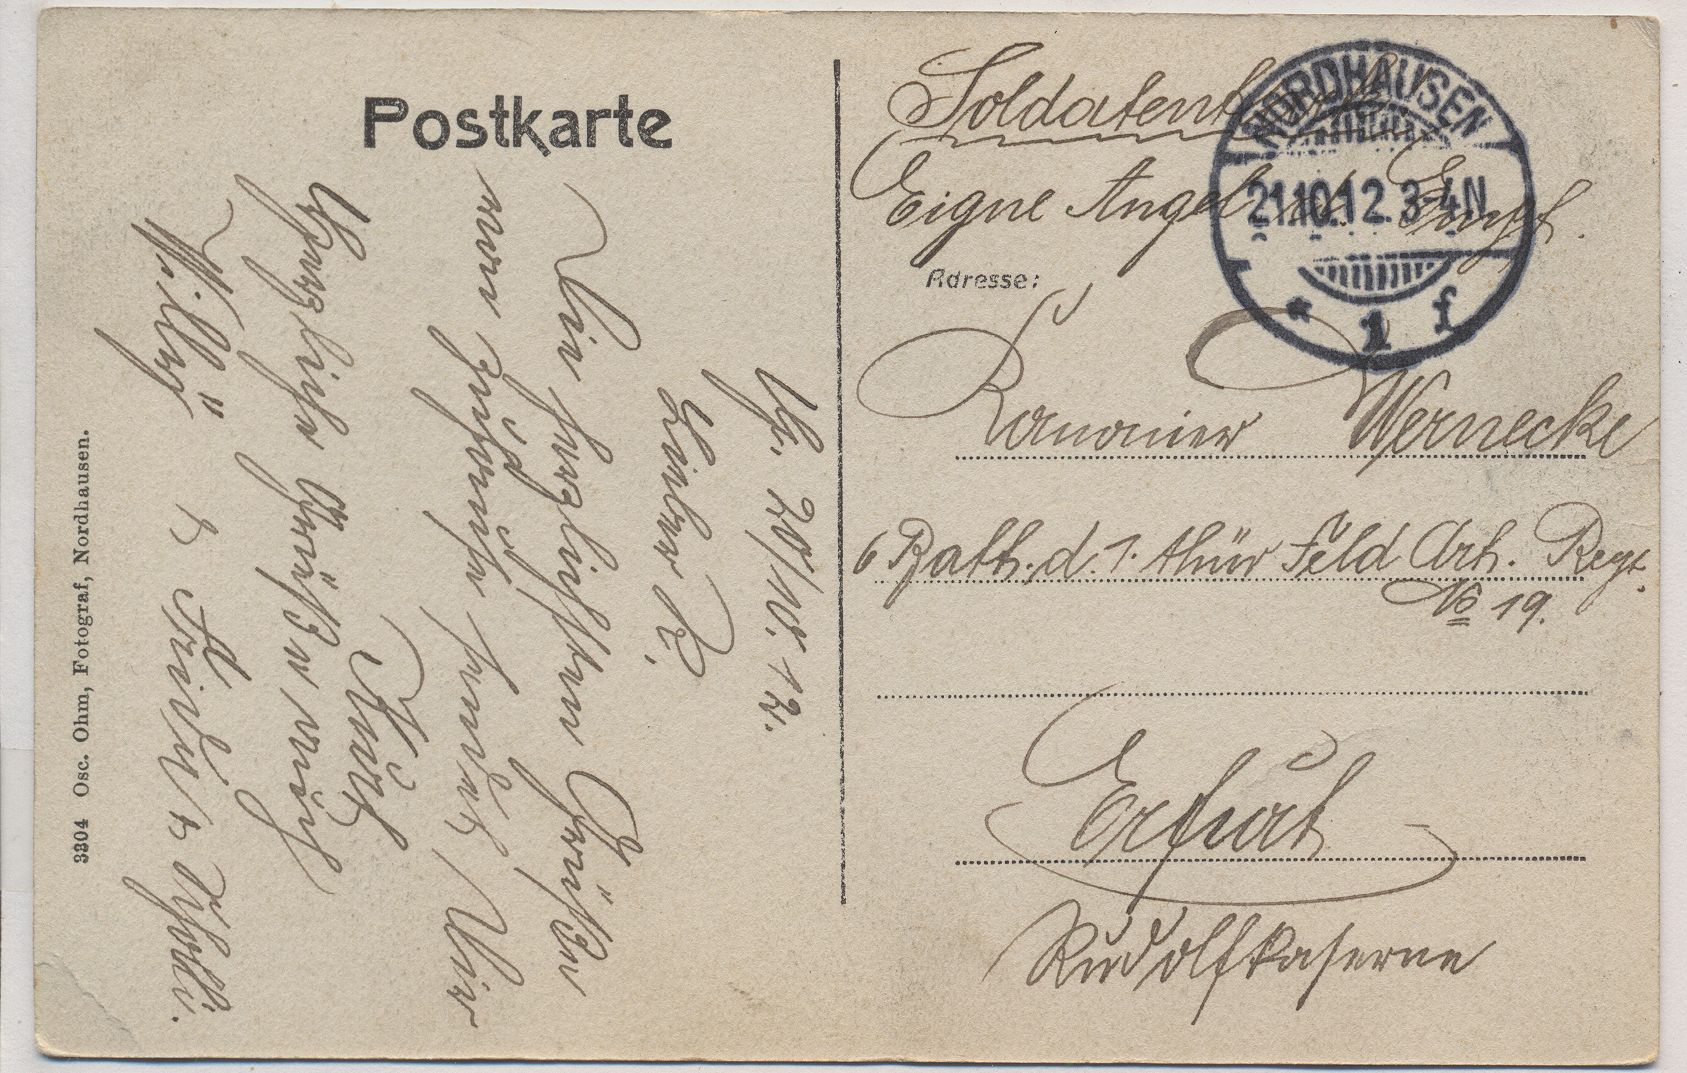 Postkarte
Ng. 20/10.12.
Lieber K.
Die herzlichsten Grüßen
von zuhause sendet Dir
Kurt
Herzliche Grüße von mich
Willy u Frieda u
3304 Osc. Ohm, Fotograf, Nordhausen.
Soldatenk
Eigne Angel d. Empf.
NORDHAUSEN
21.10.12. 3-4N
* 1 f
Adresse:
Kanonier Wernecke
6 Batt. d. 1. thür Feld Art. Regt.
No 19.
Erfurt
Rudolfkaserne